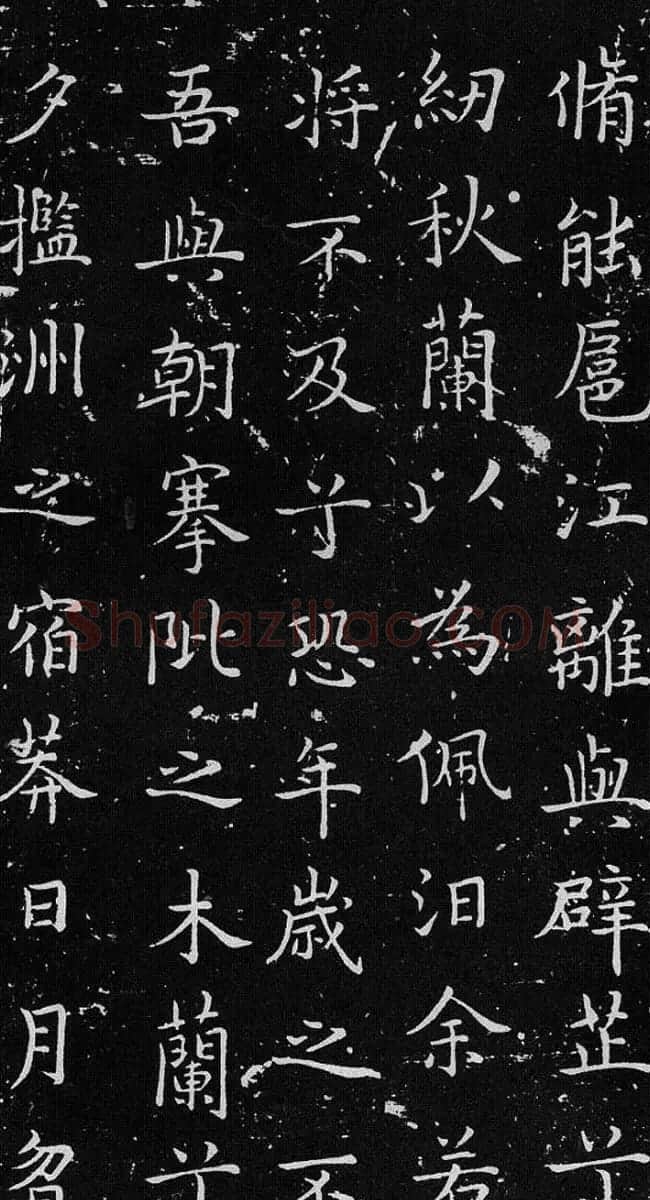 脩能扈江離與辟芷兮
紉秋蘭以為佩汩余若
將不及兮恐年歲之不
吾與朝搴阰之木蘭兮
夕擥洲之宿莽日月忽
Shufaziliao.COM